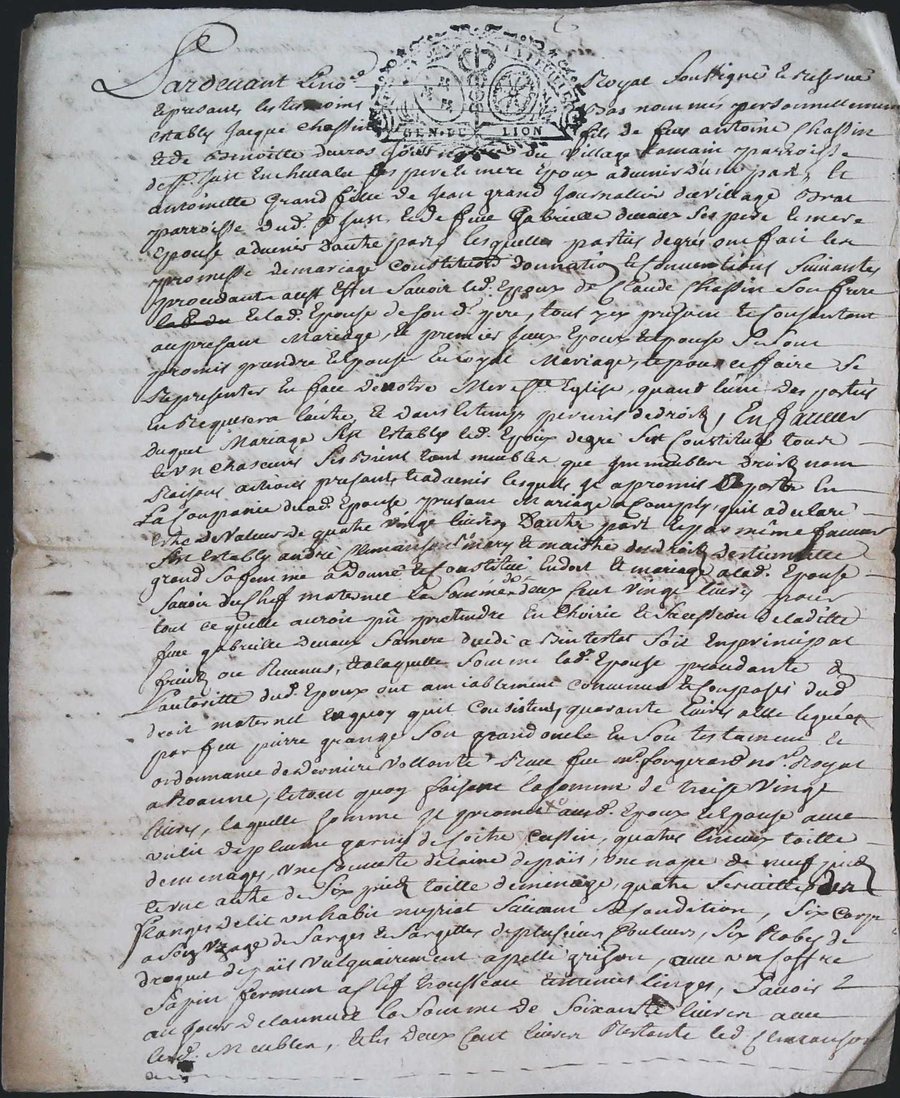 Pardevant le no.re Royal soussigné et réservé
et présans les tesmoins bas nommés personnellement
GEN. DE LION
establi Jacque Chassin fils de feus antoine Chassin
et de Benoitte du village Romain parroisse
de St. Just En chevalet ses pere et mere Epoux advenir d'une part, Et
antoinette Grand fille de Jean grand Journallier du village
parroisse dud. St Just, et de feue Gabrielle devaux Ses pere et mere
Epouse advenir d'autre part lesquelles parties de gré ont fait les
promesse de mariage constitution donnation et conventions suivantes
procedante a cest Effet Savoir led. Epoux de Claude Chassin Son frere
Et lad. Epouse de sond. pere, tous yci présant et consantant
au présant Mariage, Et premier feux Epoux et epouse se sont
promis prandre et epouser En loyal Mariage, et pour ce faire se
représenter En face de notre Mere Ste Eglise, quant l'une des parties
En Requerera l'autre, Et dans le temps permis de droit, En faveur
duquel Mariage s'est Establi led. Epoux de gré s'est Constitué tous
et un chascuns ses biens tant meubles que Immeubles Droits nom
Raisons actions présants et advenir lesquels Il a promis Apporter En
La Compagnie de lad. Epouse présant Mariage accomply qu'il a déclaré
Estre de valeur de quatre vingt livres D'autre part Et par même faveur
s'est Establi andré
grand sa femme a donné et constitué En dot et mariage a lad. Epouse
Savoir du chef maternel la somme de deux cent vingt livres pour
tout ce qu'elle auroit pû pretendre En l'hoirie et succession de ladite
feue gabrielle devaux sa mere décédé ab intestat soit En principal
fruits ou Revenus, de laquelle somme lad. Epouse procedante de
L'autoritté dud. Epoux ont amiablement convenus et composés dud.
droit maternel En quoy qu'il consiste, quarante livres a elle leguée
par feu pierre grange son grand oncle En son testament Et
ordonnance de derniere vollonté Reçue feu me. forgerand no.re Royal
a Roanne, le tout quoy faisant la somme de treize vingt
livres, laquelle somme Il promet aud. Epoux et epouse avec
un lit de plume garnis de Coitre cussin, quatre linceux toille
de menages, une couverte de laine de païs, une nape de neuf pieds
et une autre de six pieds toille de menage, quatre serviettes
franges de lit un habit nuptial suivant sa condition, six corps
a son usage de sarges et sargettes de plusieurs couleurs, six Robes de
droguet de païs vulgairement appellé grison, avec un coffre
Sapin fermant a clef trousseau et menus linges, Savoir
au jour de la nuce la somme de soixante livres avec
lesd. Meubles, Et les deux cent livres Restante led.